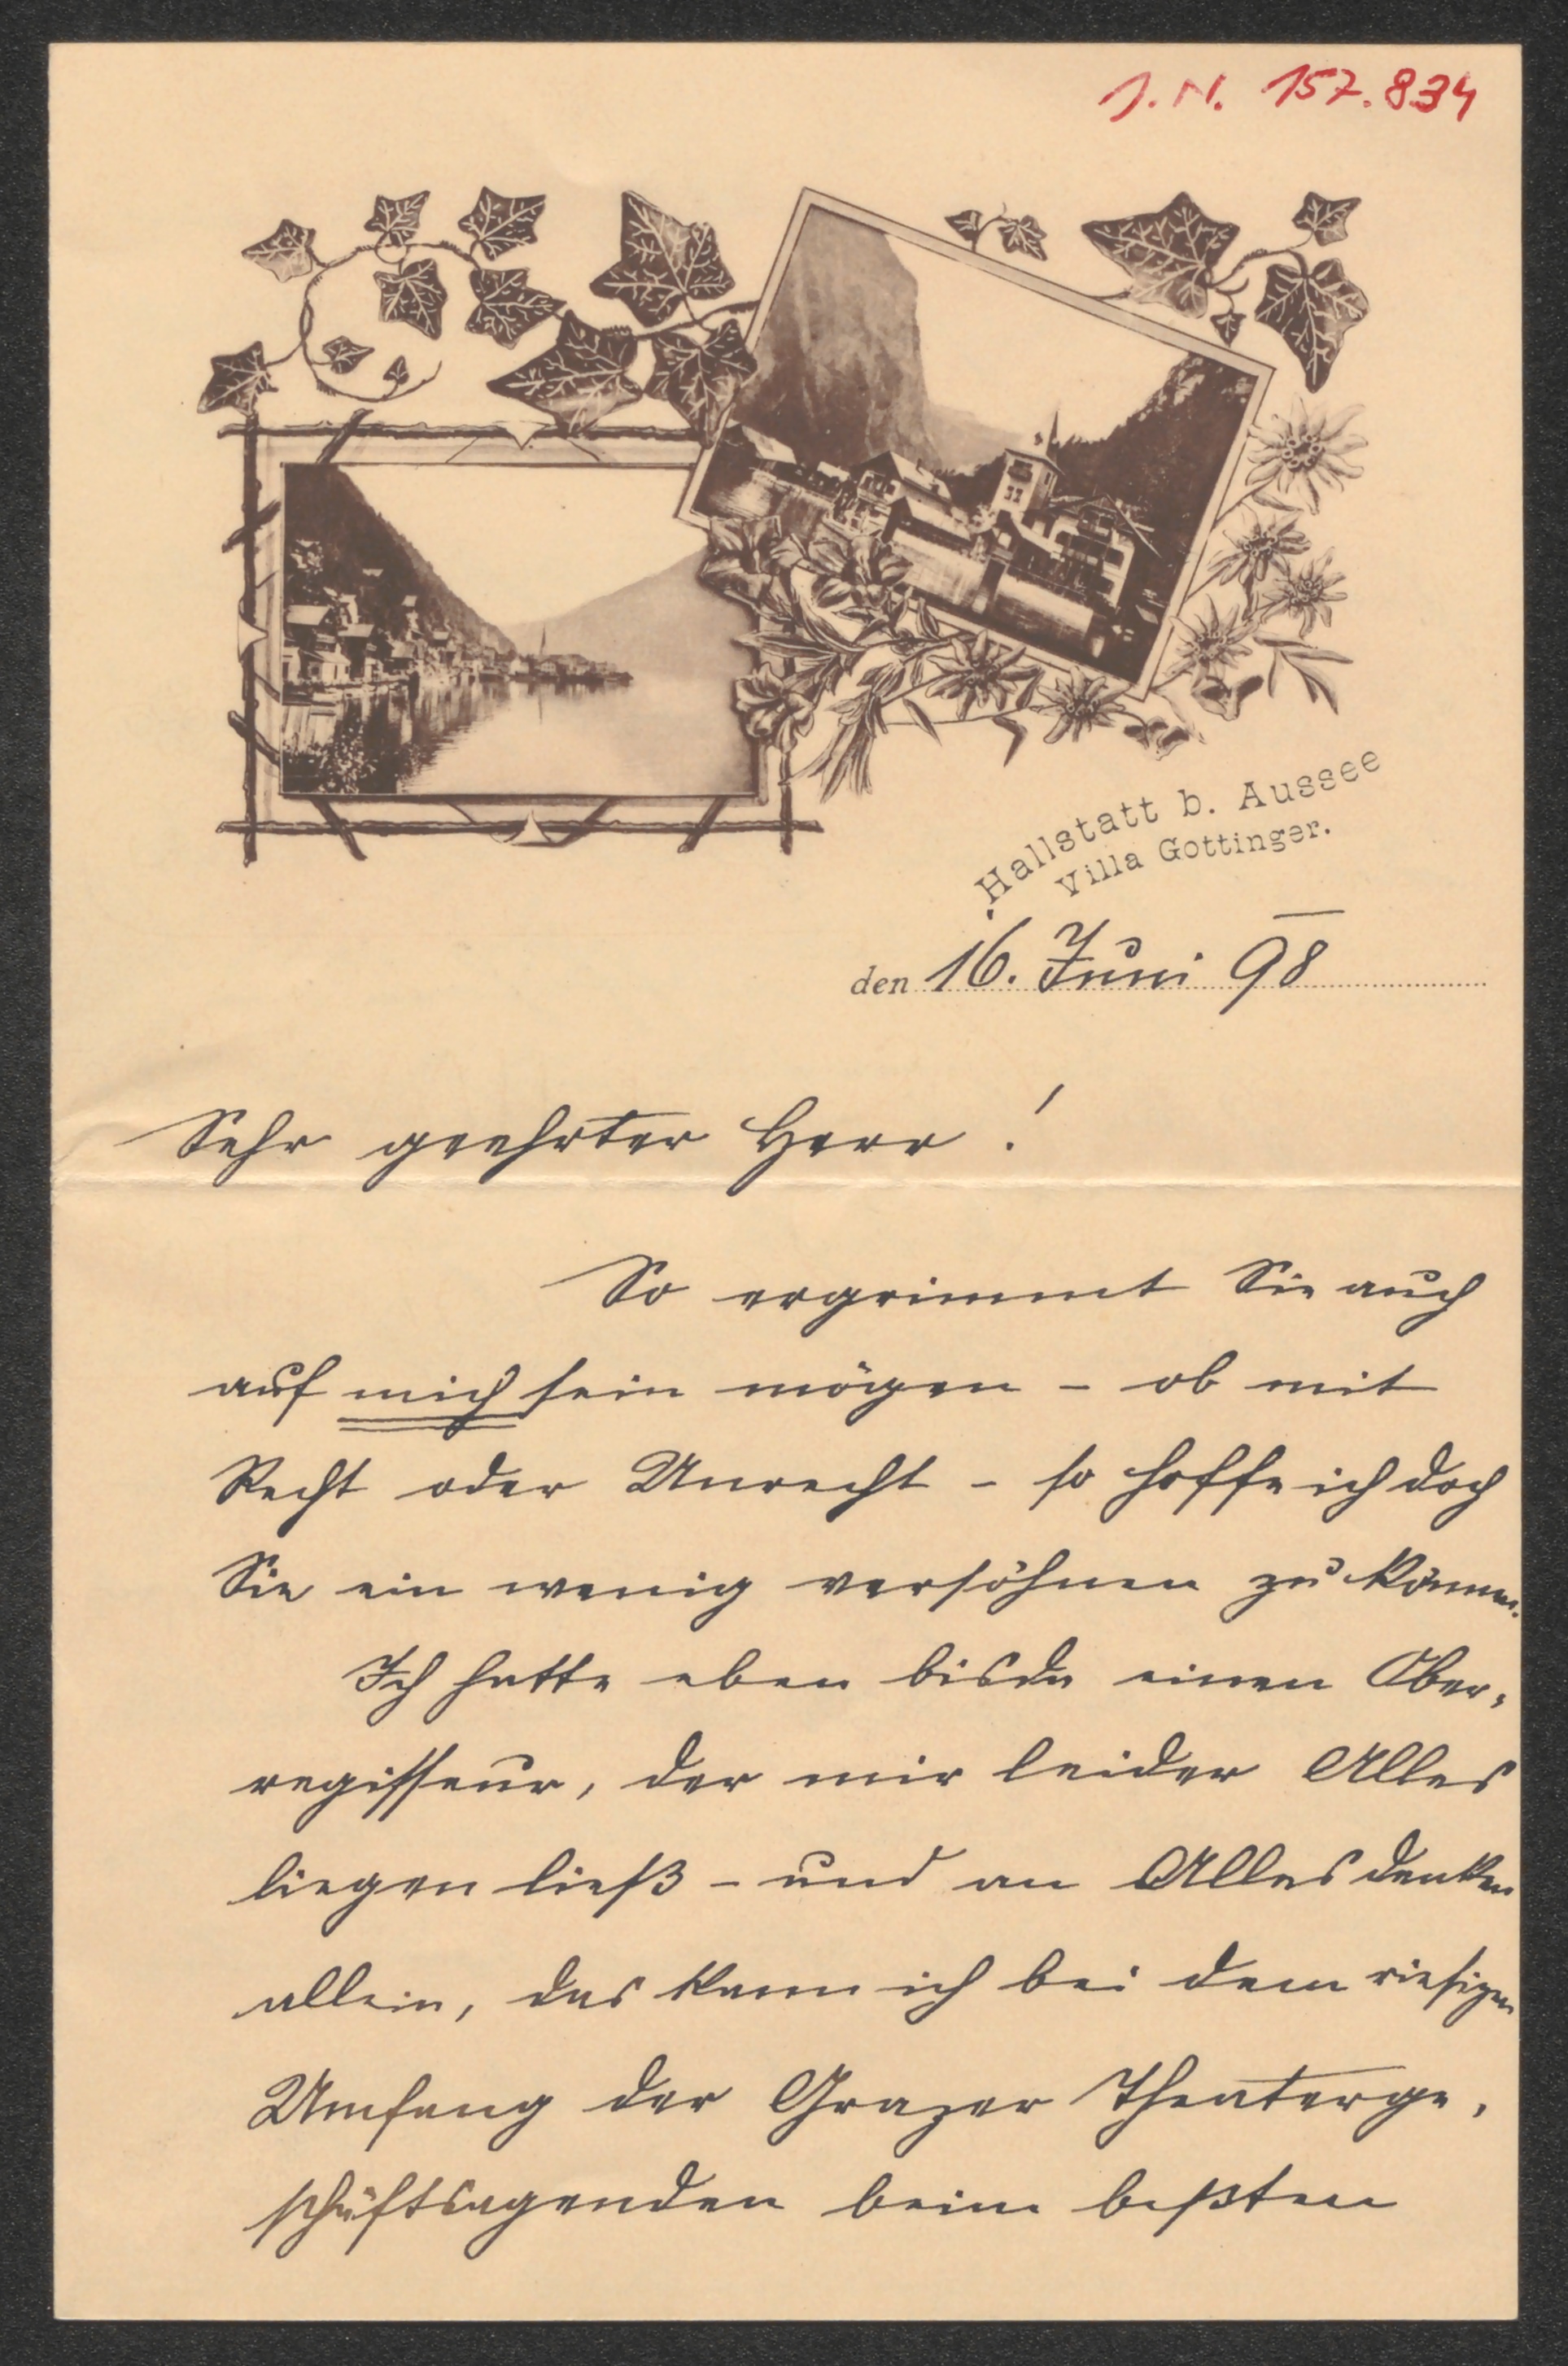 J.N. 157.834
Hallstatt b. Aussee
Villa Gottinger.
den 16. Juni 98
Sehr geehrter Herr!
So ergrimmt Sie auch
auf mich sein mögen – ob mit
Recht oder Unrecht – so hoffe ich doch
Sie ein wenig versöhnen zu können.
Ich hatte eben bisda einen Ober,
regisseur, der mir leider Alles
liegen ließ – und an Alles denken
allein, das kann ich bei dem riesigen
Umfang der Grazer Theaterge,
schäftsagenden beim beßten